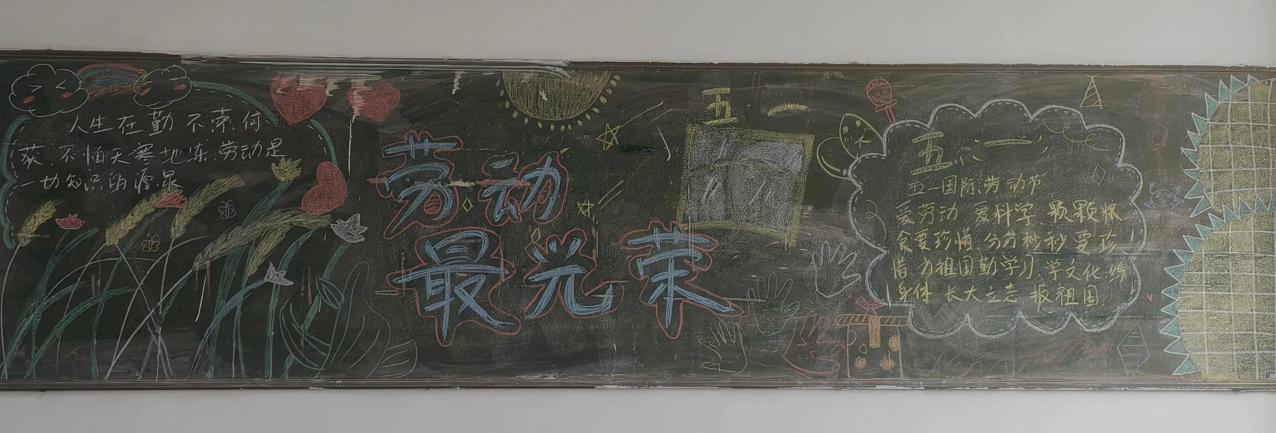 人生在勤 不索何
获 不怕天寒地冻 劳动是
一切知识的源泉
劳动
最光荣
五一
五一
五一国际劳动节
爱劳动 爱科学 颗颗粮
食要珍惜 分分秒秒要珍
惜 为祖国勤学习 学文化 炼
身体 长大立志 报祖国